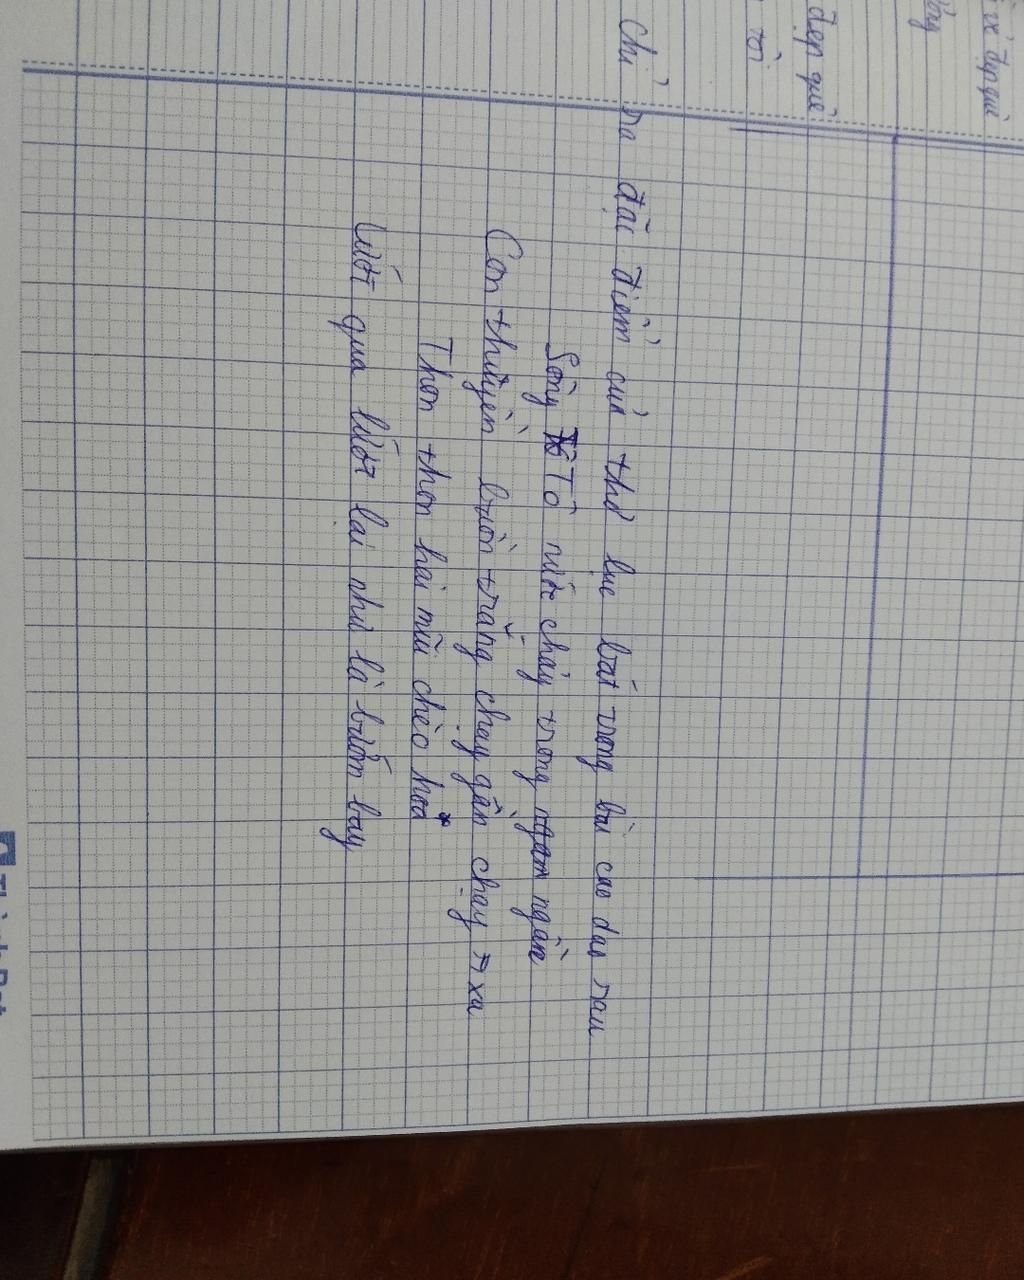 vẻ đẹp quê
đẹp quê
tôi
Chỉ ra đặc điểm của thơ lục bát trong bài cao dao sau
Sông Tô nước chảy trong ngần
Con thuyền buồn trắng chạy gần chạy xa
Thon thon hai mũi chèo hoa
Lướt qua lướt lại như là bướm bay